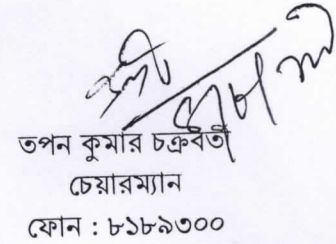 তপন কুমার চক্রবর্তী
চেয়ারম্যান
ফোন : ৮১৮৯৩০০